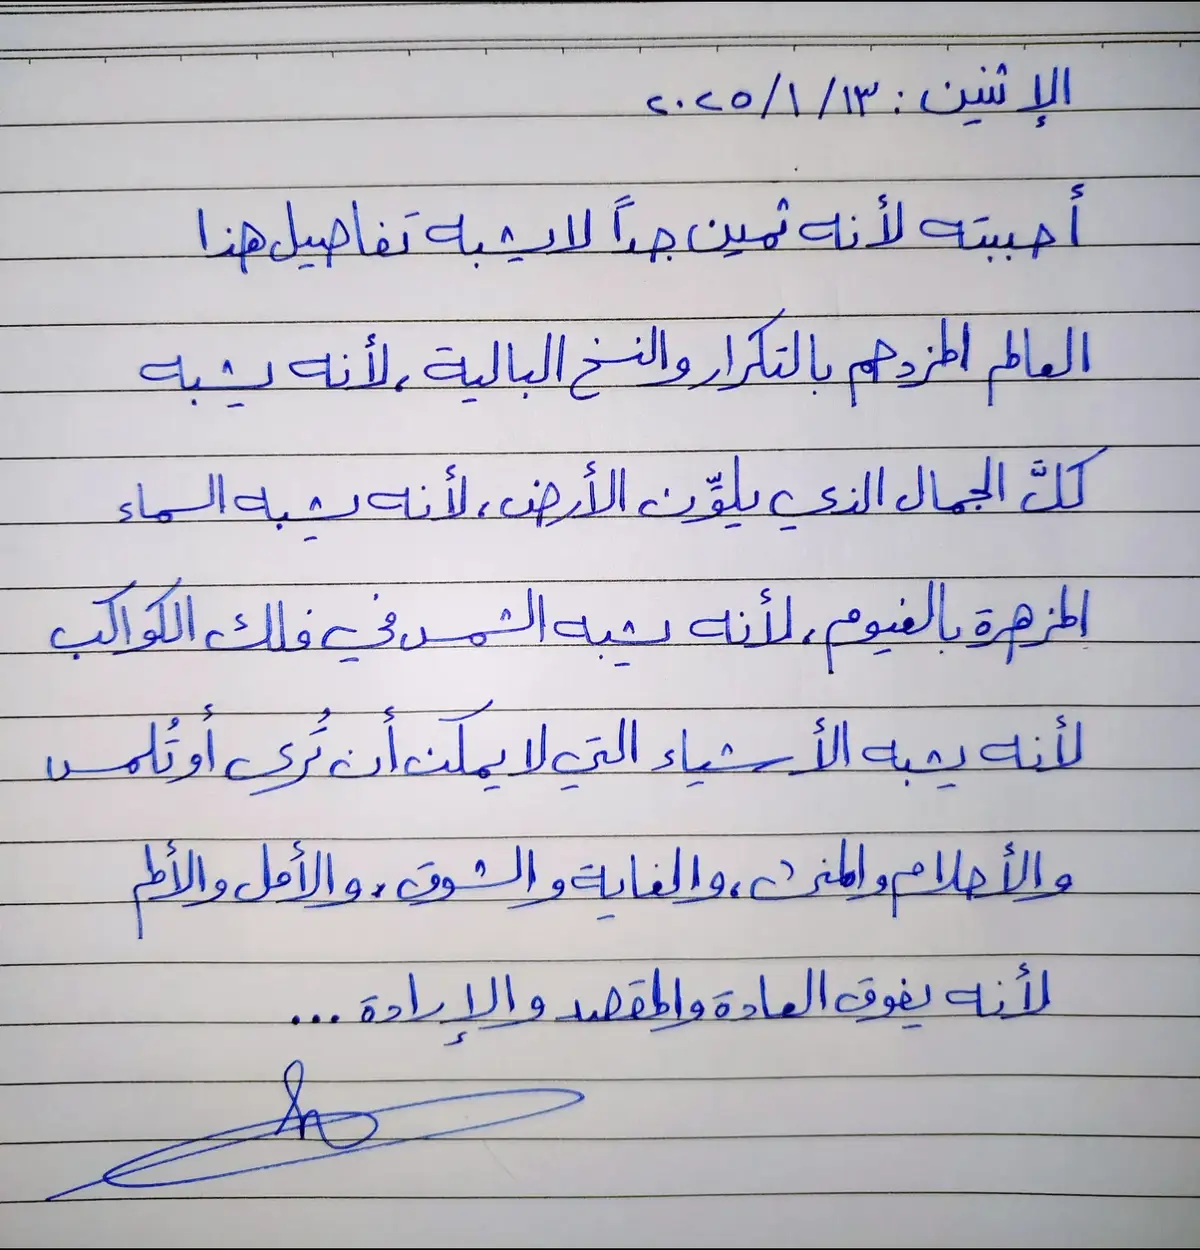 الإثنين : ٢٠٢٥/١/١٣
أحببته لأنه ثمين جداً لا يشبه تفاصيل هذا
العالم المزدحم بالتكرار والنسخ البالية ، لأنه يشبه
كلَّ الجمال الذي يلوِّن الأرض ، لأنه يشبه السماء
المزهرة بالغيوم ، لأنه يشبه الشمس في فلك الكواكب
لأنه يشبه الأشياء التي لا يمكن أن تُرى أو تُلمس
والأحلام والمنى ، والغاية والشوق ، والأمل والألم
لأنه يفوق العادة والمقصد والإرادة ...